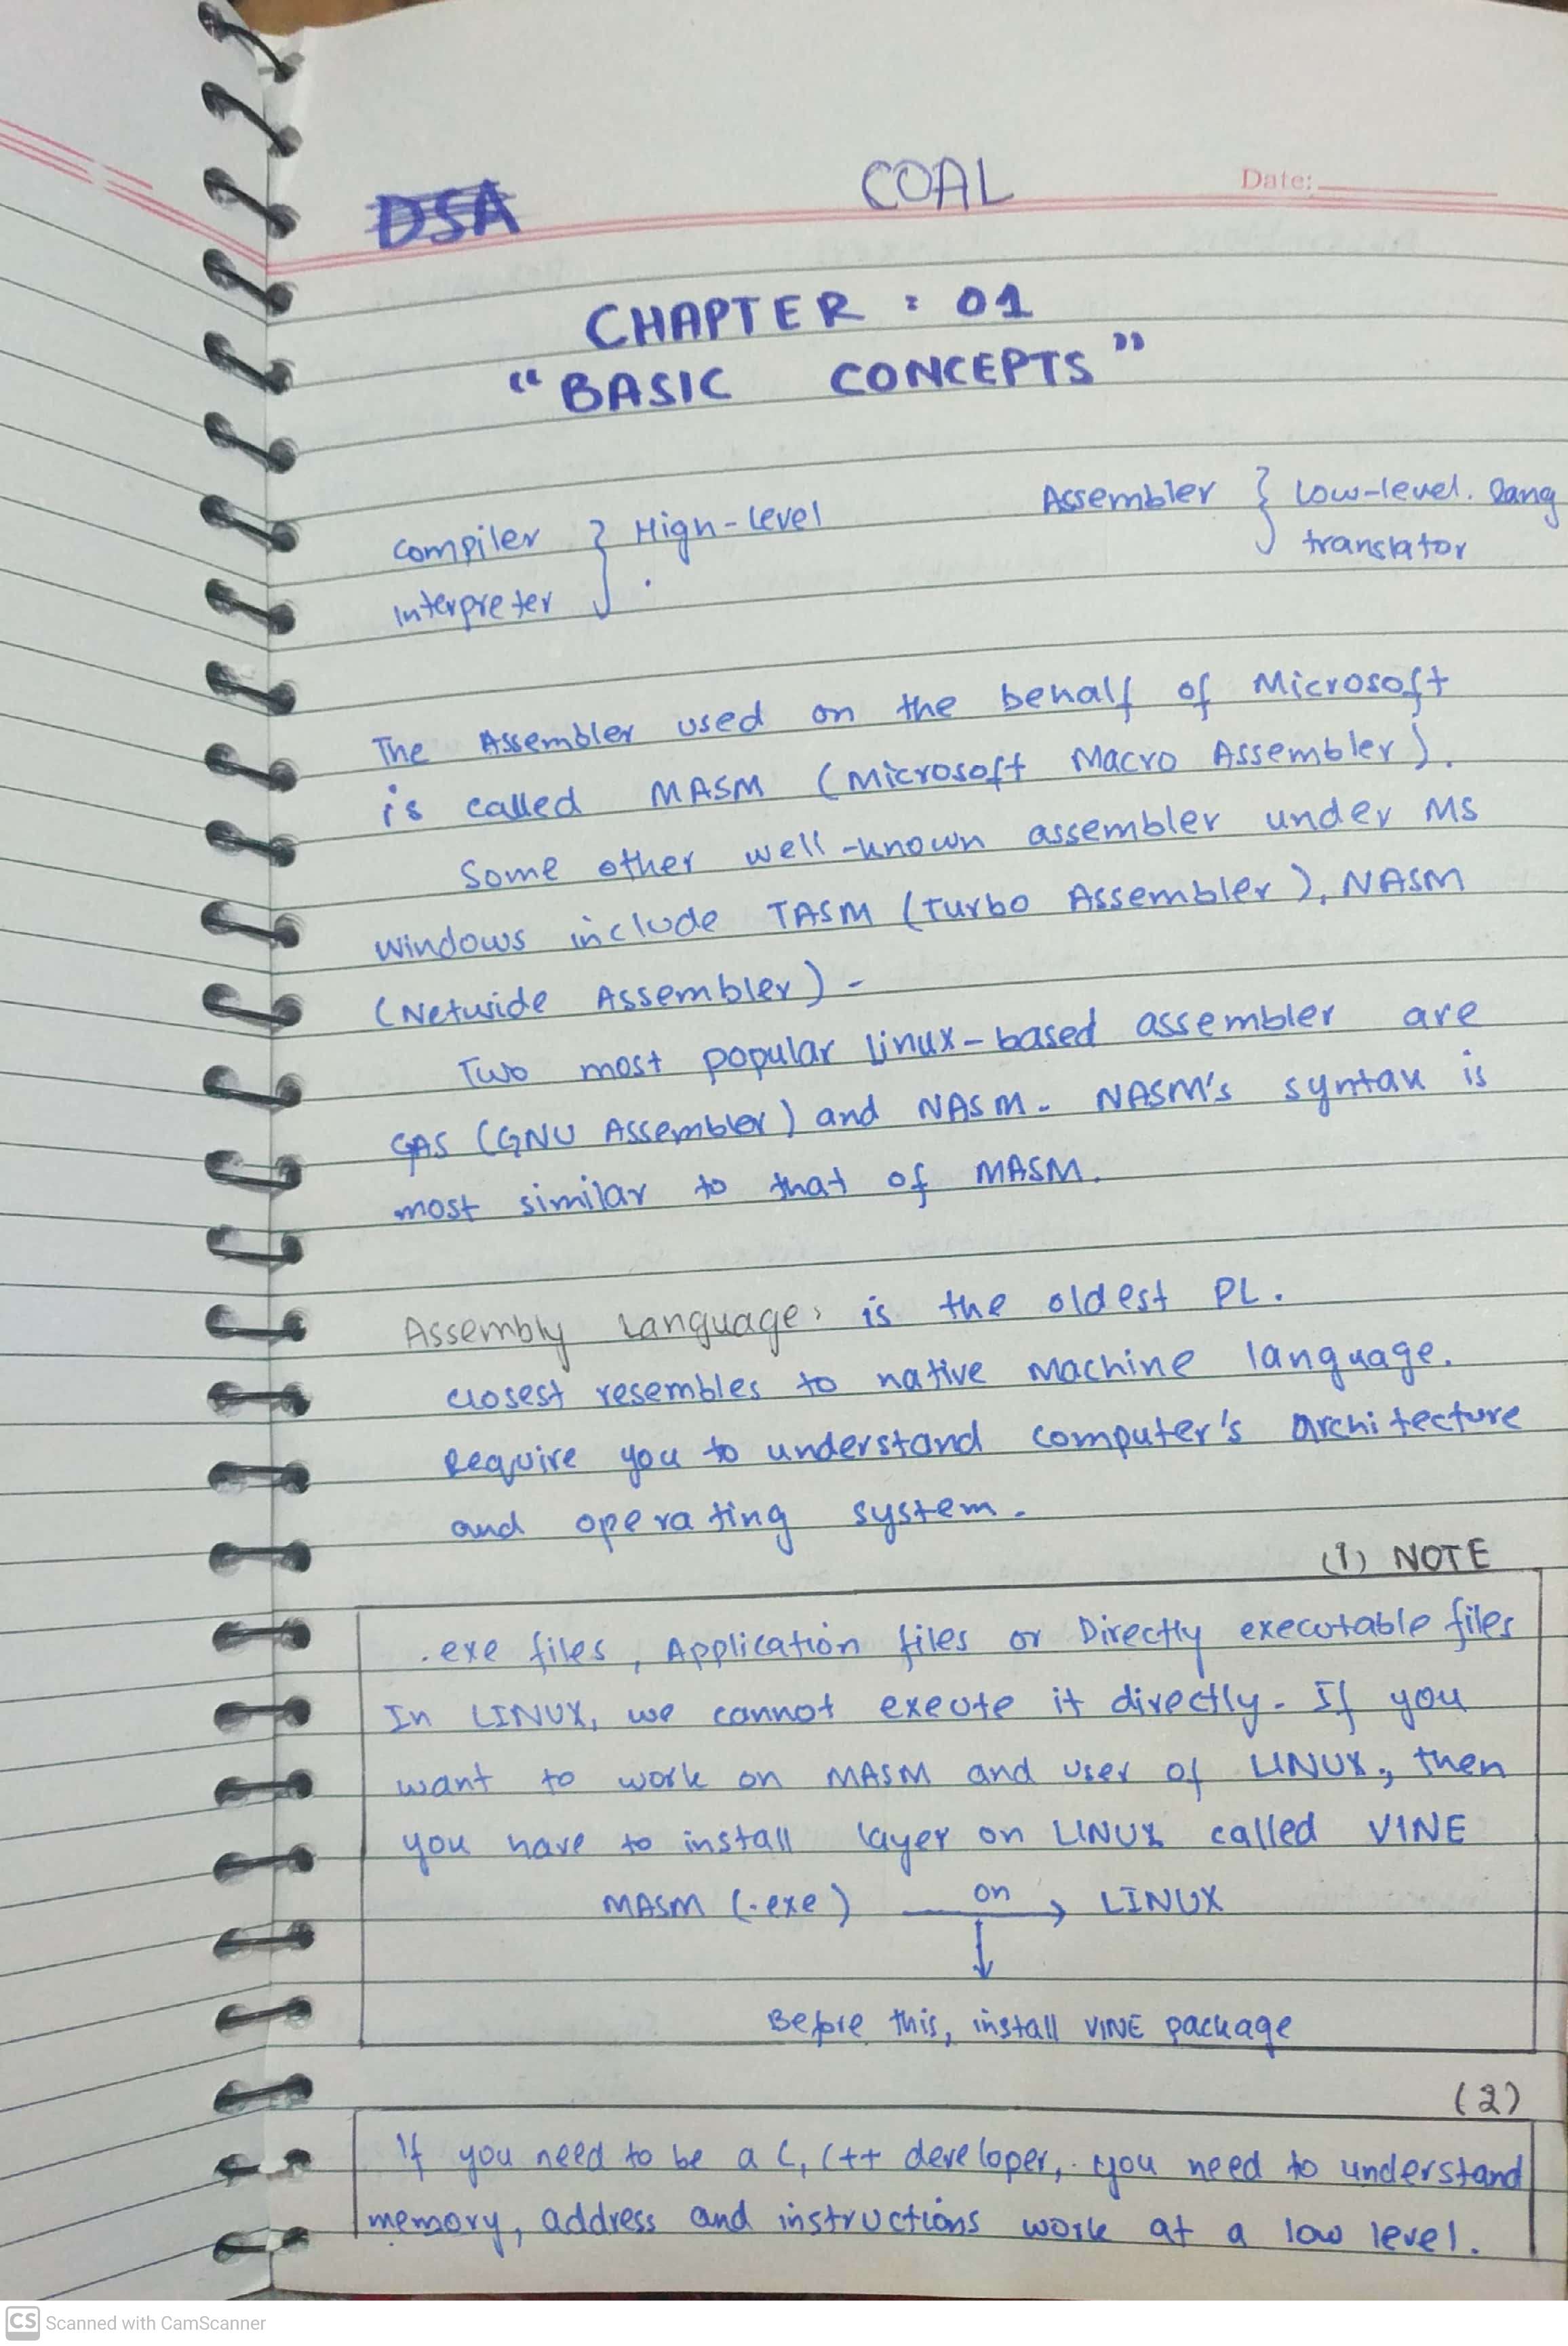 DSA COAL Date:
CHAPTER : 01
"BASIC CONCEPTS"
Compiler } High-level Assembler } Low-level. lang
Interpreter translator
The Assembler used on the behalf of Microsoft
is called MASM (Microsoft Macro Assembler).
Some other well-known assembler under MS
windows include TASM (Turbo Assembler), NASM
(Netwide Assembler).
Two most popular linux-based assembler are
GAS (GNU Assembler) and NASM. NASM's syntax is
most similar to that of MASM.
Assembly Language: is the oldest PL.
closest resembles to native machine language.
Require you to understand computer's architecture
and operating system.
(1) NOTE
.exe files, Application files or Directly executable files
In LINUX, we cannot exeute it directly. If you
want to work on MASM and user of LINUX, then
you have to install layer on LINUX called VINE
MASM (.exe) on → LINUX
↓
Before this, install VINE package
(2)
If you need to be a C, C++ developer, you need to understand
memory, address and instructions work at a low level.
CS Scanned with CamScanner